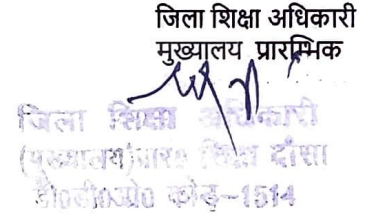 जिला शिक्षा अधिकारी
मुख्यालय प्रारम्भिक
जिला शिक्षा अधिकारी
(मुख्यालय) प्रार० शिक्षा दौसा
डी०डी०ओ० कोड-1514